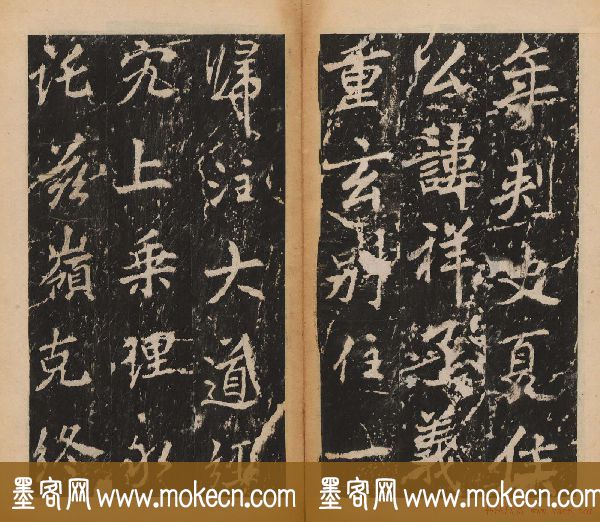 年刺史夏侯
公諱祥函義
重玄別住一
歸注大道經
究上乘理於
託茲嶺克終
墨客网 www.mokecn.com 墨客网 www.mokecn.com